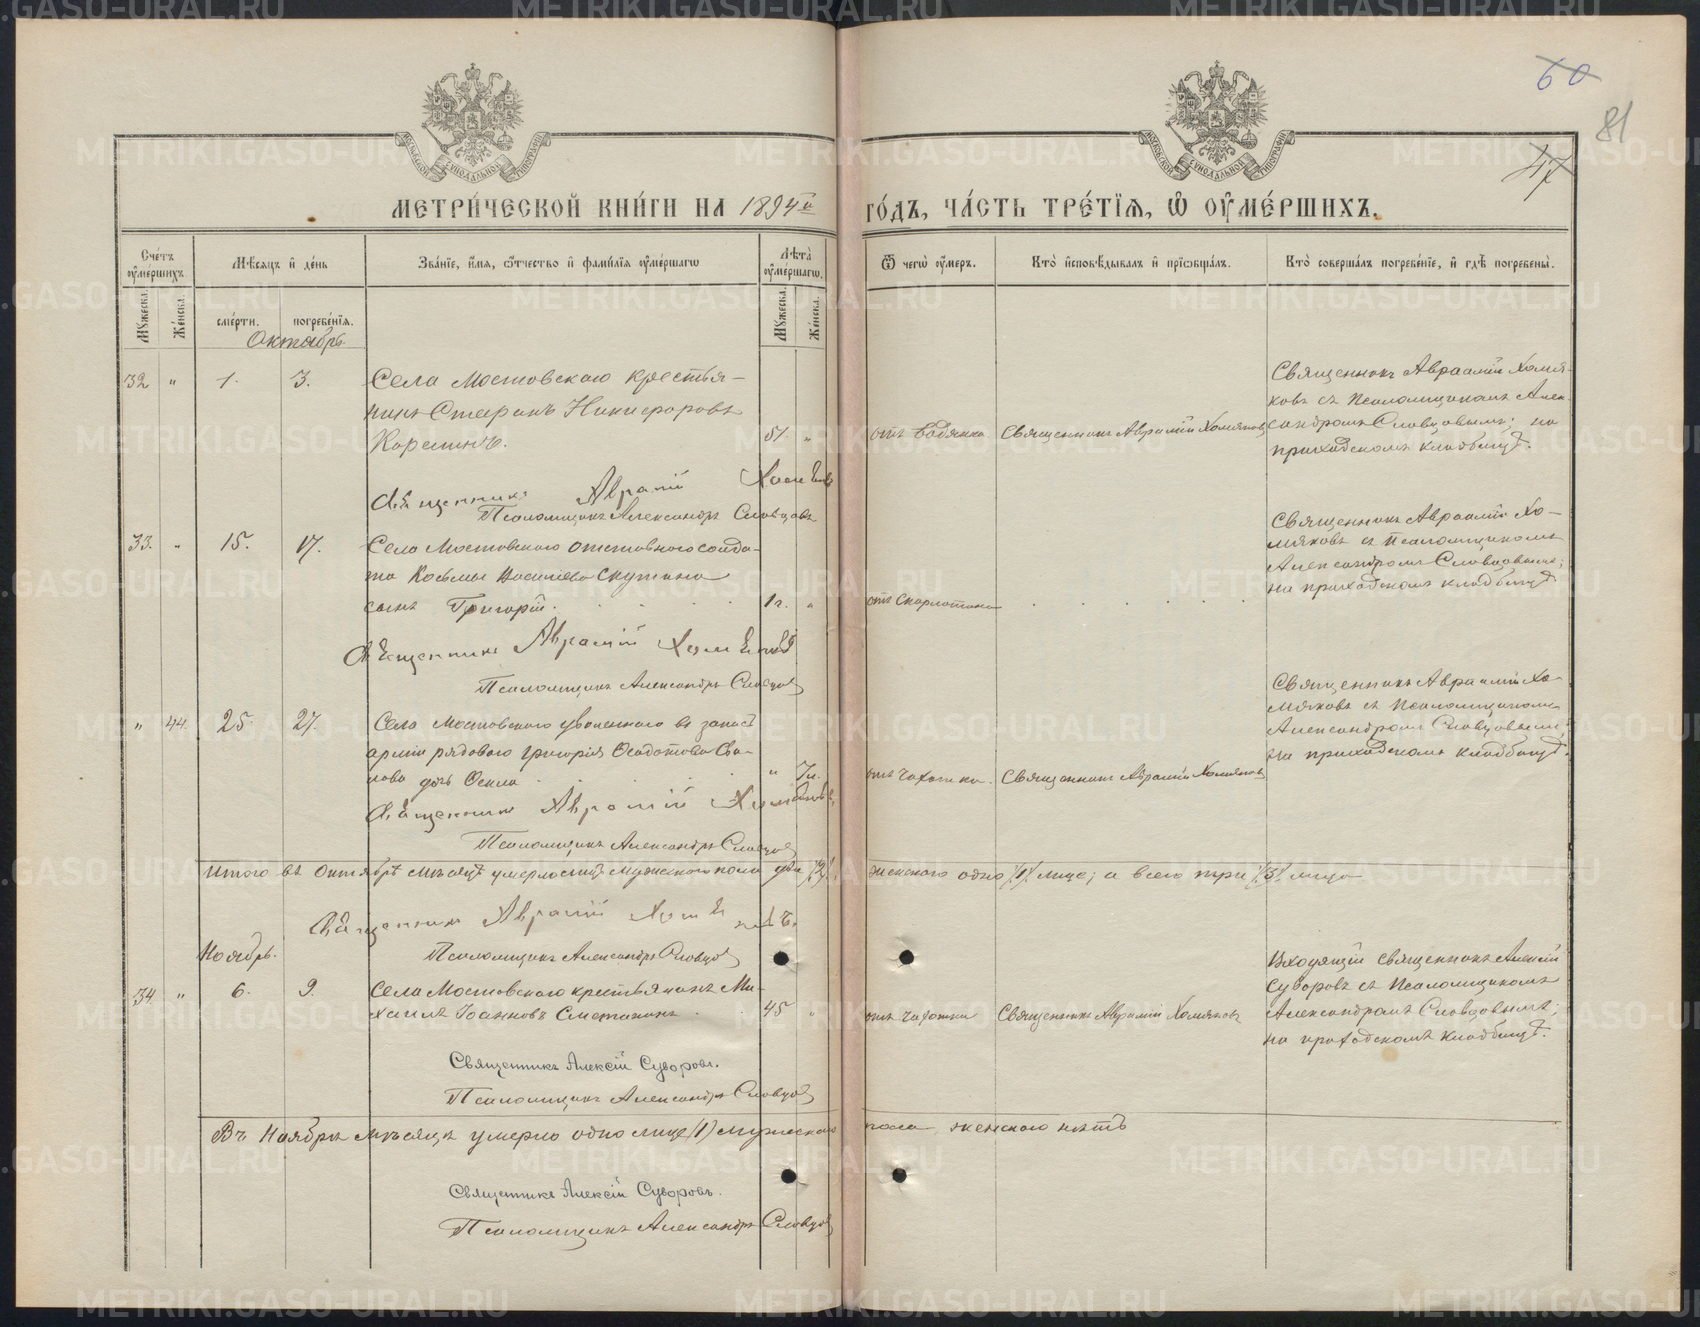 60
81
47
МЕТРИ́ЧЕСКОЙ КНИ́ГИ НА 1894й ГО́ДЪ, ЧА́СТЬ ТРЕ́ТІЯ, Ѡ ОУМЕ́РШИХЪ.
Сче́тъ оумершихъ.
Мѣсяцъ и день
Зва́ніе, имя, отчество и фами́лія оуме́ршагѡ
Лѣта̀ оуме́ршагѡ.
Ѿ чегѡ̀ оумеръ.
Кто̀ исповѣ́дывалъ и пріѡбща́лъ.
Кто̀ соверша́лъ погребе́ніе, и гдѣ̀ погребены̀.
Мужеска.
Женска.
сме́рти.
погребе́нія.
Мужеска.
Женска.
Октябрь
32 " 1. 3. Села Мостовскаго крестья-
нинъ Стефанъ Никифоровъ
Корелинъ. 51. "
Священникъ Авраамій Хомяковъ
Священникъ Авраамій Хомя-
ковъ съ Псаломщикомъ Алек-
сандромъ Словцовымъ; на
приходскомъ кладбищѣ.
Священникъ Авраамій Хомяковъ
Псаломщикъ Александръ Словцовъ
33. " 15. 17. Села Мостовскаго отставного солда-
та Косьмы Василіева Скутина
сынъ Григорій. 1 г. "
отъ Скарлатины
Священникъ Авраамій Хо-
мяковъ съ Псаломщикомъ
Александромъ Словцовымъ;
на приходскомъ кладбищѣ.
Священникъ Авраамій Хомяковъ
Псаломщикъ Александръ Словцовъ
" 44. 25. 27. Села Мостовскаго уволеннаго въ запасъ
арміи рядоваго Григорія Ѳеодотова
дочь " 7 л.
отъ чахотки. Священникъ Авраамій Хомяковъ
Священникъ Авраамій Хо-
мяковъ съ Псаломщикомъ
Александромъ Словцовымъ;
на приходскомъ кладбищѣ.
Священникъ Авраамій Хомяковъ
Псаломщикъ Александръ Словцовъ
Итого въ Октябрѣ мѣсяцѣ умерло лицъ мужескаго пола два /2/, женскаго одно /1/ лице; а всего три /3/ лица
Священникъ Авраамій Хомяковъ.
Псаломщикъ Александръ Словцовъ
Ноябрь.
34. " 6. 9. Села Мостовскаго крестьянинъ Ми-
хаилъ Іоанновъ Сметанинъ 45 "
отъ чахотки Священникъ Авраамій Хомяковъ
Входящій Священникъ Алексій
Суворовъ съ Псаломщикомъ
Александромъ Словцовымъ;
на приходскомъ кладбищѣ.
Священникъ Алексій Суворовъ.
Псаломщикъ Александръ Словцовъ
Въ Ноябрѣ мѣсяцѣ умерло одно лице /1/ мужескаго пола, женскаго нѣтъ
Священникъ Алексій Суворовъ.
Псаломщикъ Александръ Словцовъ
METRIKI.GASO-URAL.RU